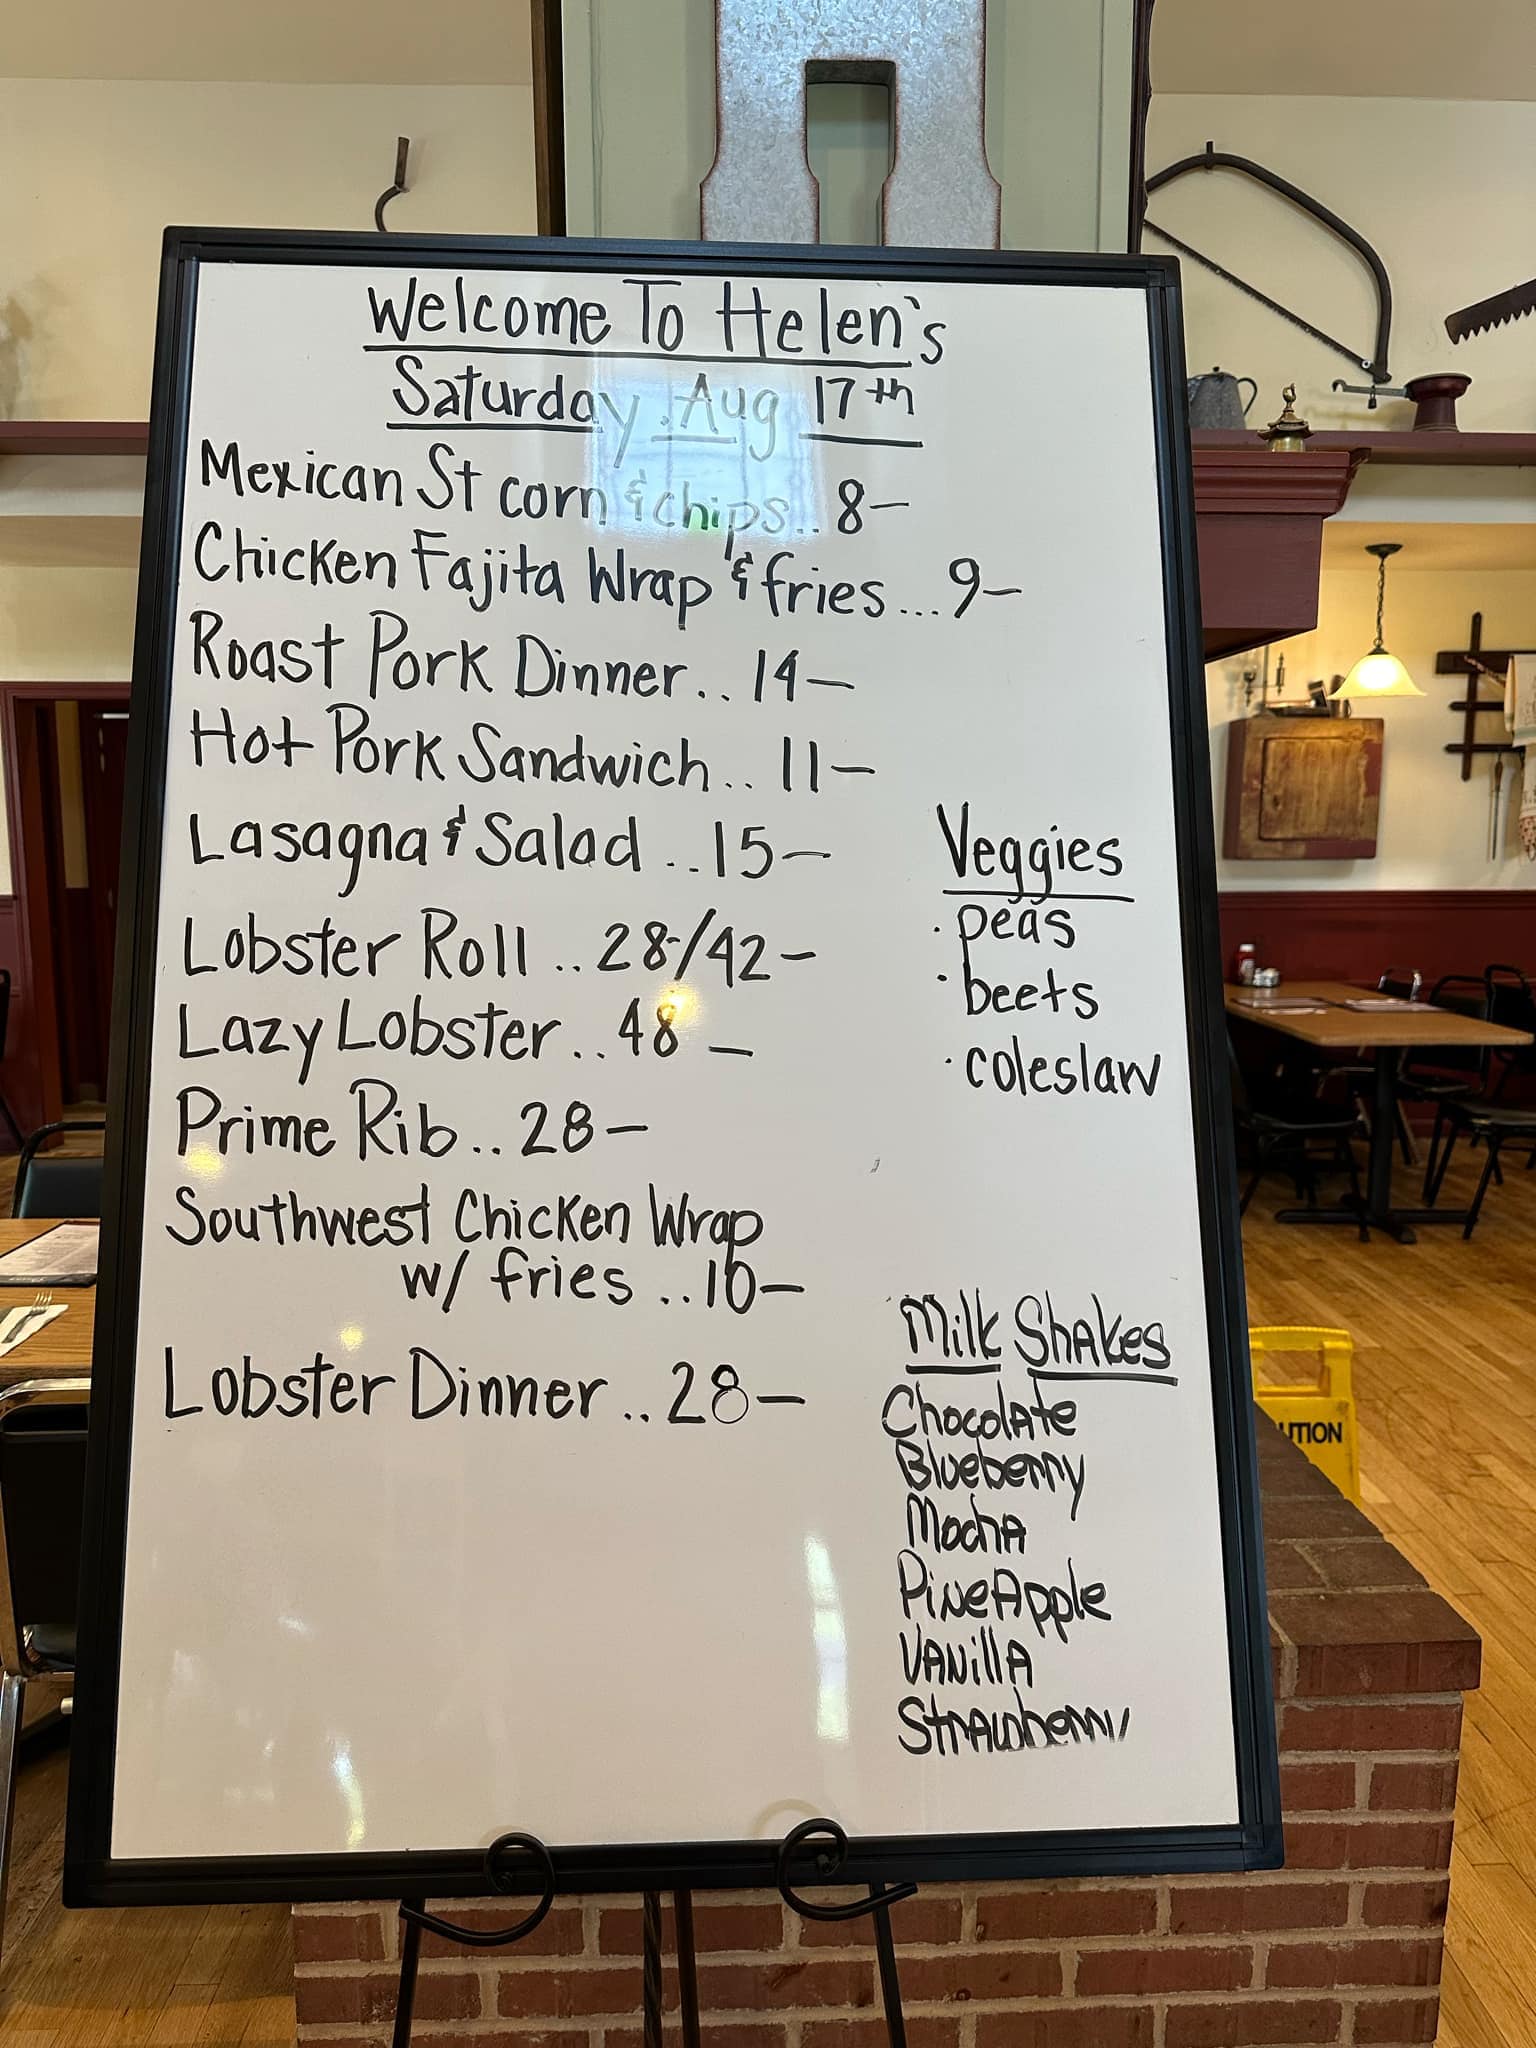 Welcome To Helen's
Saturday. Aug 17th
Mexican St corn & chips.. 8-
Chicken Fajita Wrap & fries... 9-
Roast Pork Dinner.. 14-
Hot Pork Sandwich.. 11-
Lasagna & Salad ..15-
Lobster Roll .. 28-/42-
Lazy Lobster.. 48-
Prime Rib.. 28-
Southwest Chicken Wrap
w/ fries ..10-
Lobster Dinner.. 28-
Veggies
· peas
· beets
· coleslaw
Milk Shakes
Chocolate
Blueberry
Mocha
PineApple
Vanilla
Strawberry
UTION